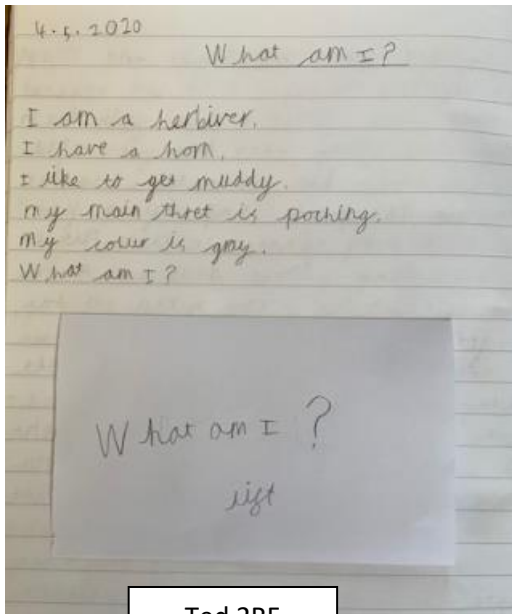 4.5.2020
What am I?
I am a herbiver.
I have a horn.
I like to get muddy.
my main thret is poching.
My colur is gray.
What am I?
What am I?
lift